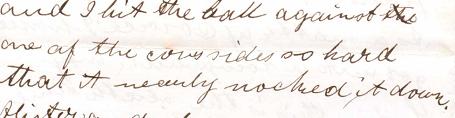 and I hit the ball against the
one of the cows sides so hard
that it nearly nocked it down.